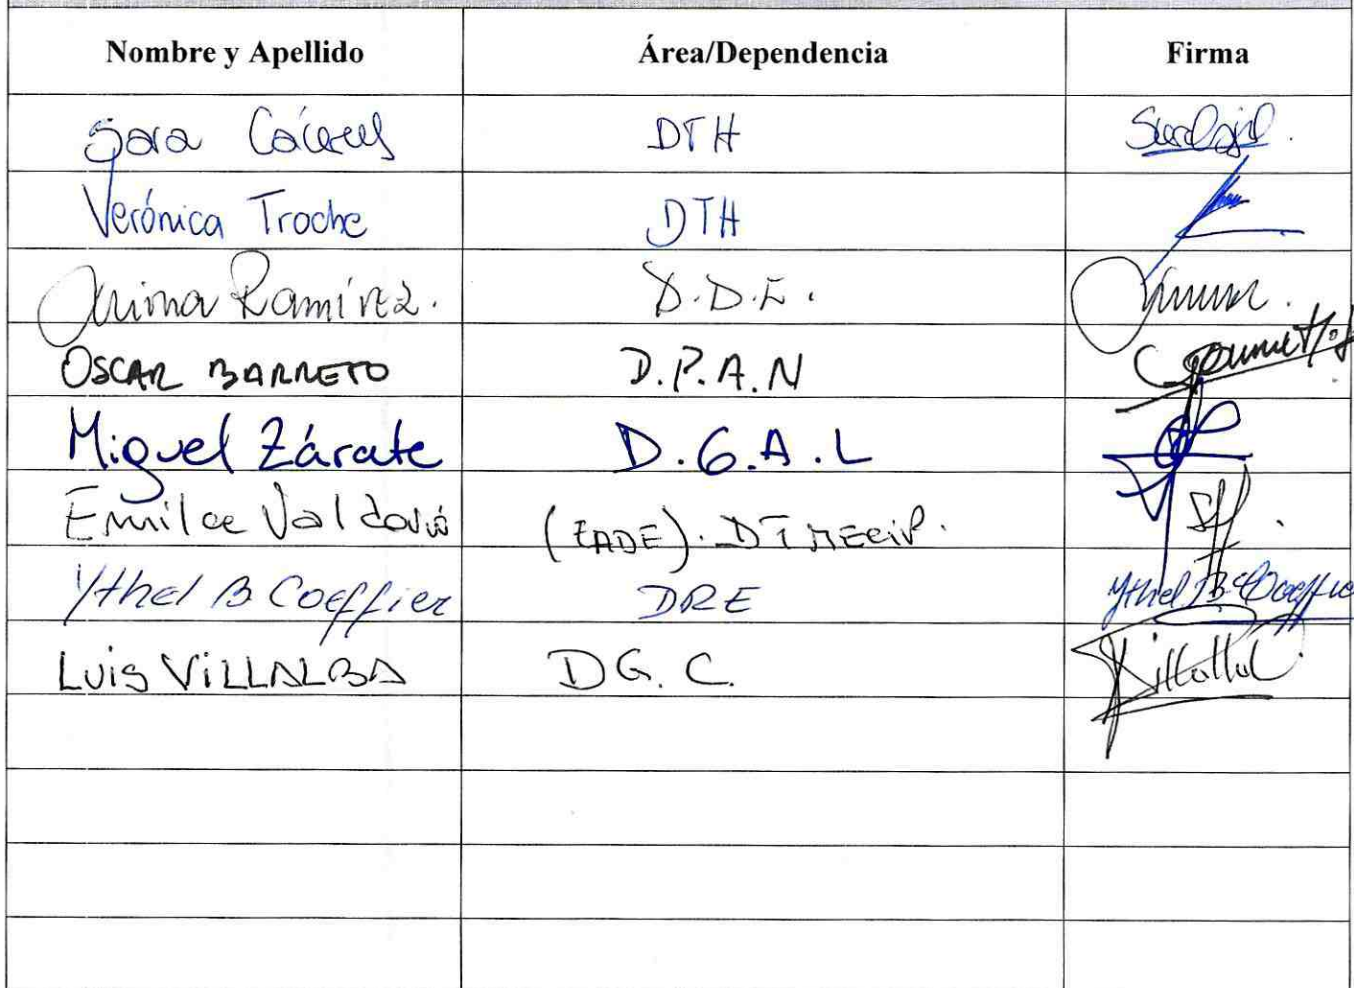 Nombre y Apellido Área/Dependencia Firma
Sara Cáceres DTH
Verónica Troche DTH
Ramírez. D.D.E.
OSCAR BARRETO D.P.A.N
Miguel Zárate D.G.A.L
Emilce (EADE). DTMECIP.
Ythel B Coeffier DRE Ythel B Coeffier
LUIS VILLALBA DG. C.